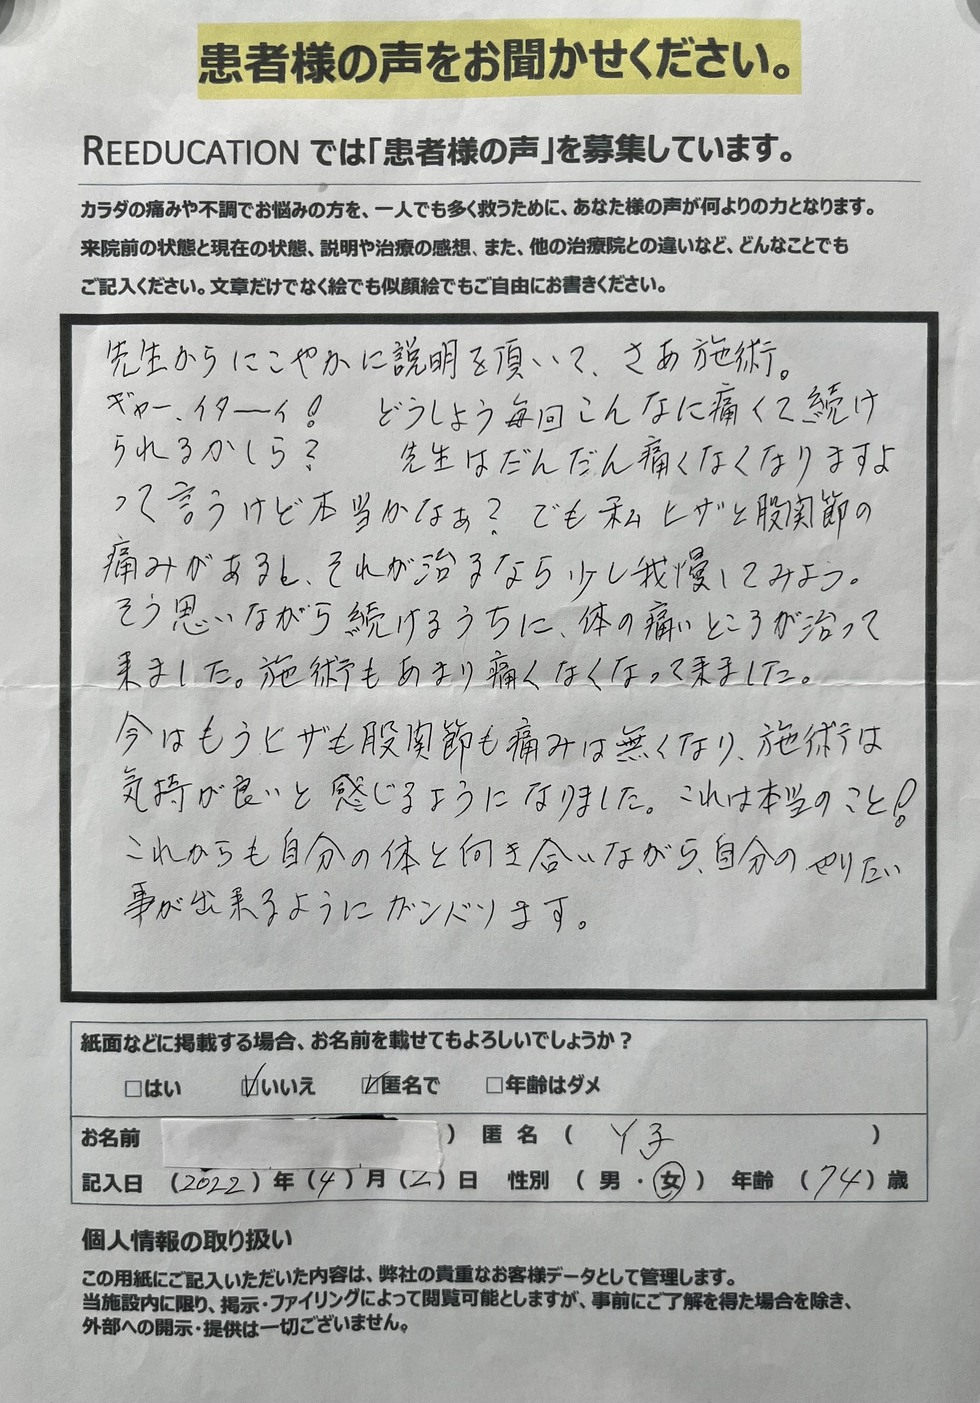 患者様の声をお聞かせください。
REEDUCATION では「患者様の声」を募集しています。
カラダの痛みや不調でお悩みの方を、一人でも多く救うために、あなた様の声が何よりの力となります。
来院前の状態と現在の状態、説明や治療の感想、また、他の治療院との違いなど、どんなことでも
ご記入ください。文章だけでなく絵でも似顔絵でもご自由にお書きください。
先生からにこやかに説明を頂いて、さあ施術。
ギャー、イターイ! どうしよう毎回こんなに痛くて続け
られるかしら? 先生はだんだん痛くなくなりますよ
って言うけど本当かなぁ? でも私ヒザと股関節の
痛みがあるし、それが治るなら少し我慢してみよう。
そう思いながら続けるうちに、体の痛いところが治って
来ました。施術もあまり痛くなくなって来ました。
今はもうヒザも股関節も痛みは無くなり、施術は
気持が良いと感じるようになりました。これは本当のこと!
これからも自分の体と向き合いながら、自分のやりたい
事が出来るようにガンバリます。
紙面などに掲載する場合、お名前を載せてもよろしいでしょうか?
□はい ☑いいえ ☑匿名で □年齢はダメ
お名前 ) 匿名 ( Y子 )
記入日 (2022) 年 (4) 月 (2) 日 性別 ( 男 ・ 女 ) 年齢 (74) 歳
個人情報の取り扱い
この用紙にご記入いただいた内容は、弊社の貴重なお客様データとして管理します。
当施設内に限り、掲示・ファイリングによって閲覧可能としますが、事前にご了解を得た場合を除き、
外部への開示・提供は一切ございません。